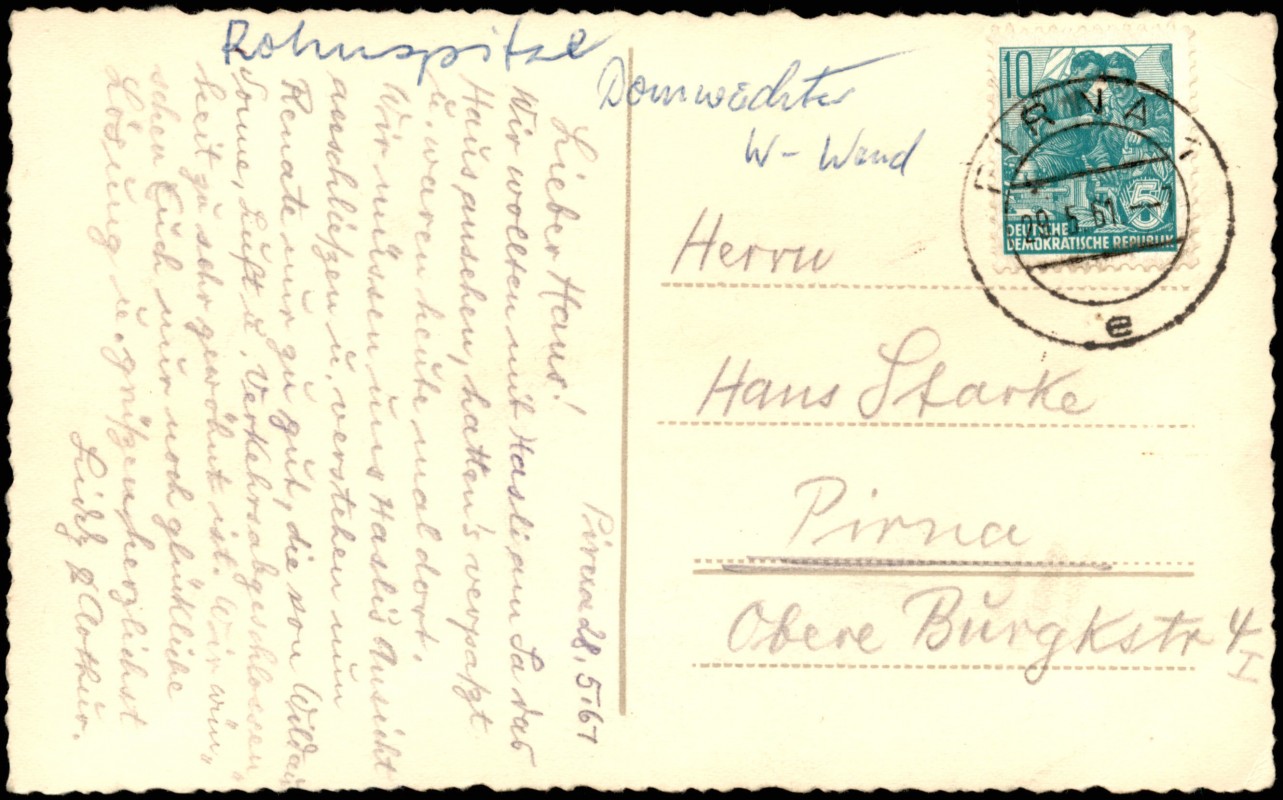 Rohnspitze
Domwächter
W - Wand
10
DEUTSCHE
DEMOKRATISCHE REPUBLIK
5
PIRNA 1
29. 5. 61
e
Herrn
Hans Starke
Pirna
Obere Burgkstr 4/I
Pirna 28. 5. 61
Lieber Hans!
Wir wollten mit Hasli am Sa das
Haus ansehen, hatten's verpaßt
u. waren heute mal dort.
Wir müssen uns Hasli's Ansicht
anschließen u. verstehen nun
Renate nur zu gut, die von Wildau
Sonne, Luft u. Verkehrsabgeschlossen-
heit zu sehr gewöhnt ist. Wir wün-
schen Euch nur noch glückliche
Lösung u. grüßen herzlichst